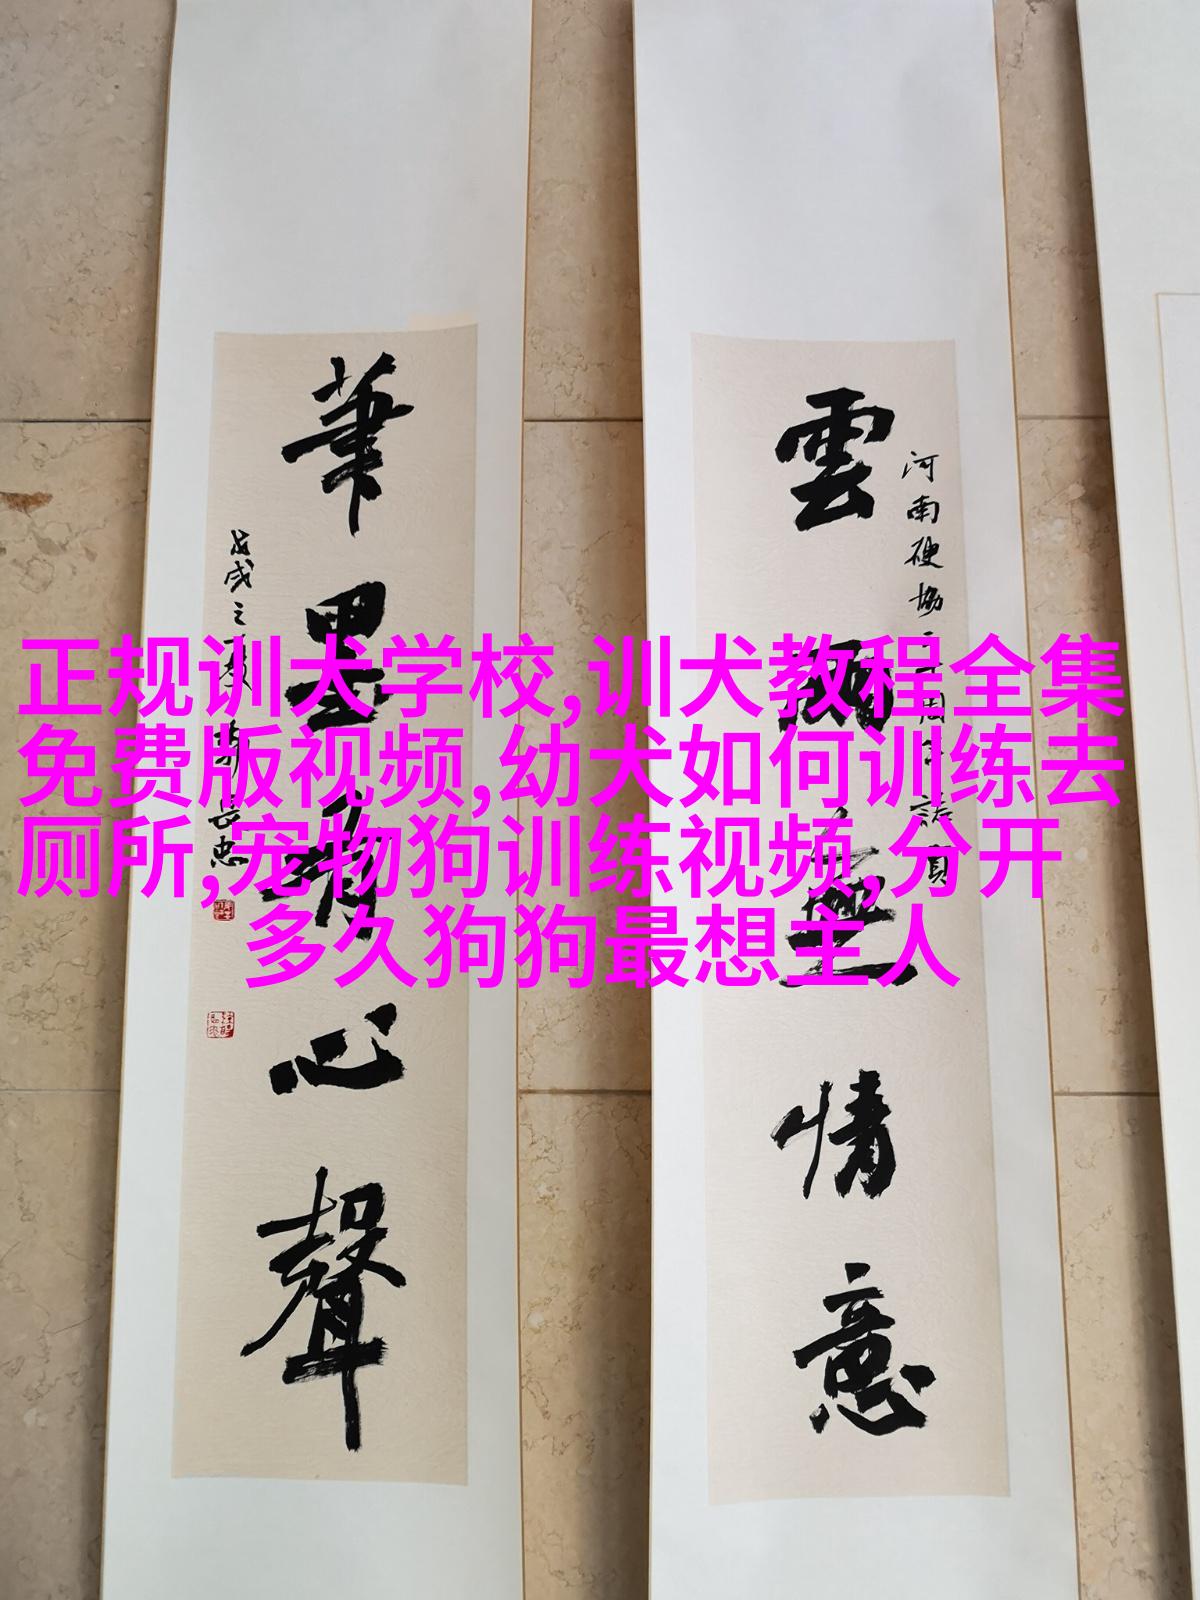 正规训犬学校,训犬教程全集
免费版视频,幼犬如何训练去
厕所,宠物狗训练视频,分开
多久狗狗最想主人
雲爾無情意
河南硬協
筆墨有心聲
戊戌之夏